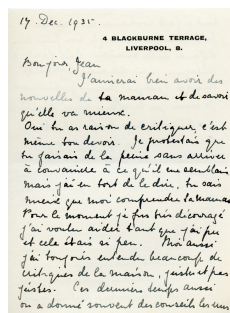 17. Dec. 1935.
4 BLACKBURNE TERRACE,
LIVERPOOL, 8.
Bonjour Jean
J'aimerai bien avoir des
nouvelles de ta maman et de savoir
qu'elle va mieux.
Oui tu as raison de critiquer, c'est
même ton devoir. Je protestais que
tu faisais de la peine sans arriver
à convaincre à ce qu'il me semblait
mais j'ai eu tort de le dire, tu sais
mieux que moi comprendre ta maman
Pour le moment je suis très découragé
j'ai voulu aider tant que j'ai pu
et cela était si peu. Moi aussi
j'ai toujours entendu beaucoup de
critiques de la maison, justes et pas
justes. Ces derniers temps aussi
on a donné souvent des conseils les uns